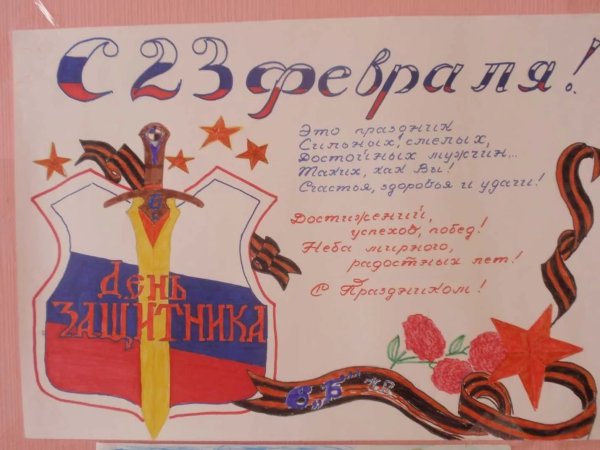 С 23 февраля!
Это праздник
Сильных, смелых,
Достойных мужчин...
Таких, как Вы!
Счастья, здоровья и удачи!
Достижений,
успехов, побед!
Неба мирного,
радостных лет!
С Праздником!
День
ЗАЩИТНИКА